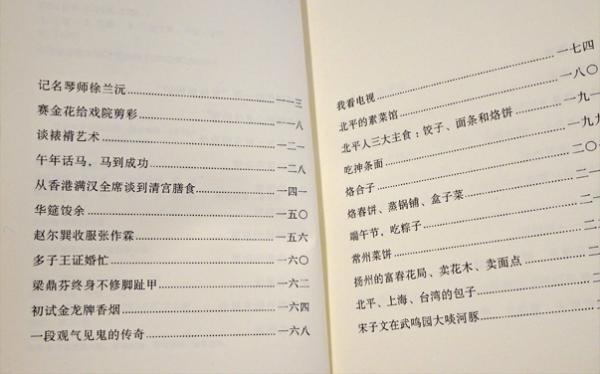 记名琴师徐兰沅 一一三
赛金花给戏院剪彩 一一八
谈裱褙艺术 一二一
午年话马,马到成功 一二八
从香港满汉全席谈到清宫膳食 一四一
华筵饺余 一五〇
赵尔巽收服张作霖 一五六
多子王证婚忙 一六〇
梁鼎芬终身不修脚趾甲 一六二
初试金龙牌香烟 一六四
一段观气见鬼的传奇 一六八
我看电视 一七四
北平的素菜馆 一八〇
北平人三大主食:饺子、面条和烙饼 一九
吃抻条面 一九
烙合子 二〇
烙春饼、蒸锅铺、盒子菜 二
端午节,吃粽子 二
常州菜饼 二
扬州的富春花局、卖花木、卖面点
北平、上海、台湾的包子
宋子文在武鸣园大啖河豚